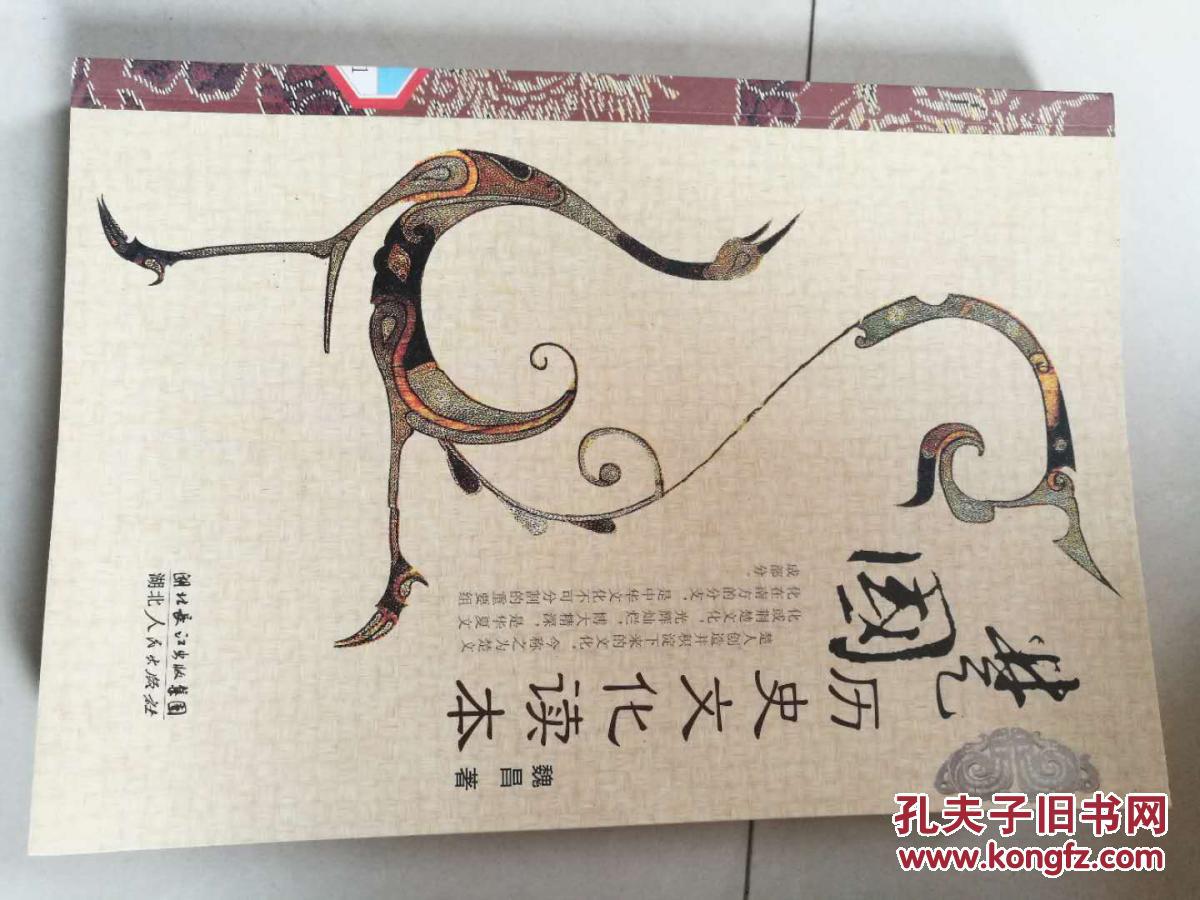 楚國
历史文化读本
魏昌 著
楚人创造并积淀下来的文化，今称之为楚文
化或荆楚文化，光辉灿烂，博大精深，是华夏文
化在南方的分支，是中华文化不可分割的重要组
成部分。
湖北长江出版集团
湖北人民出版社
1
孔夫子旧书网
www.kongfz.com